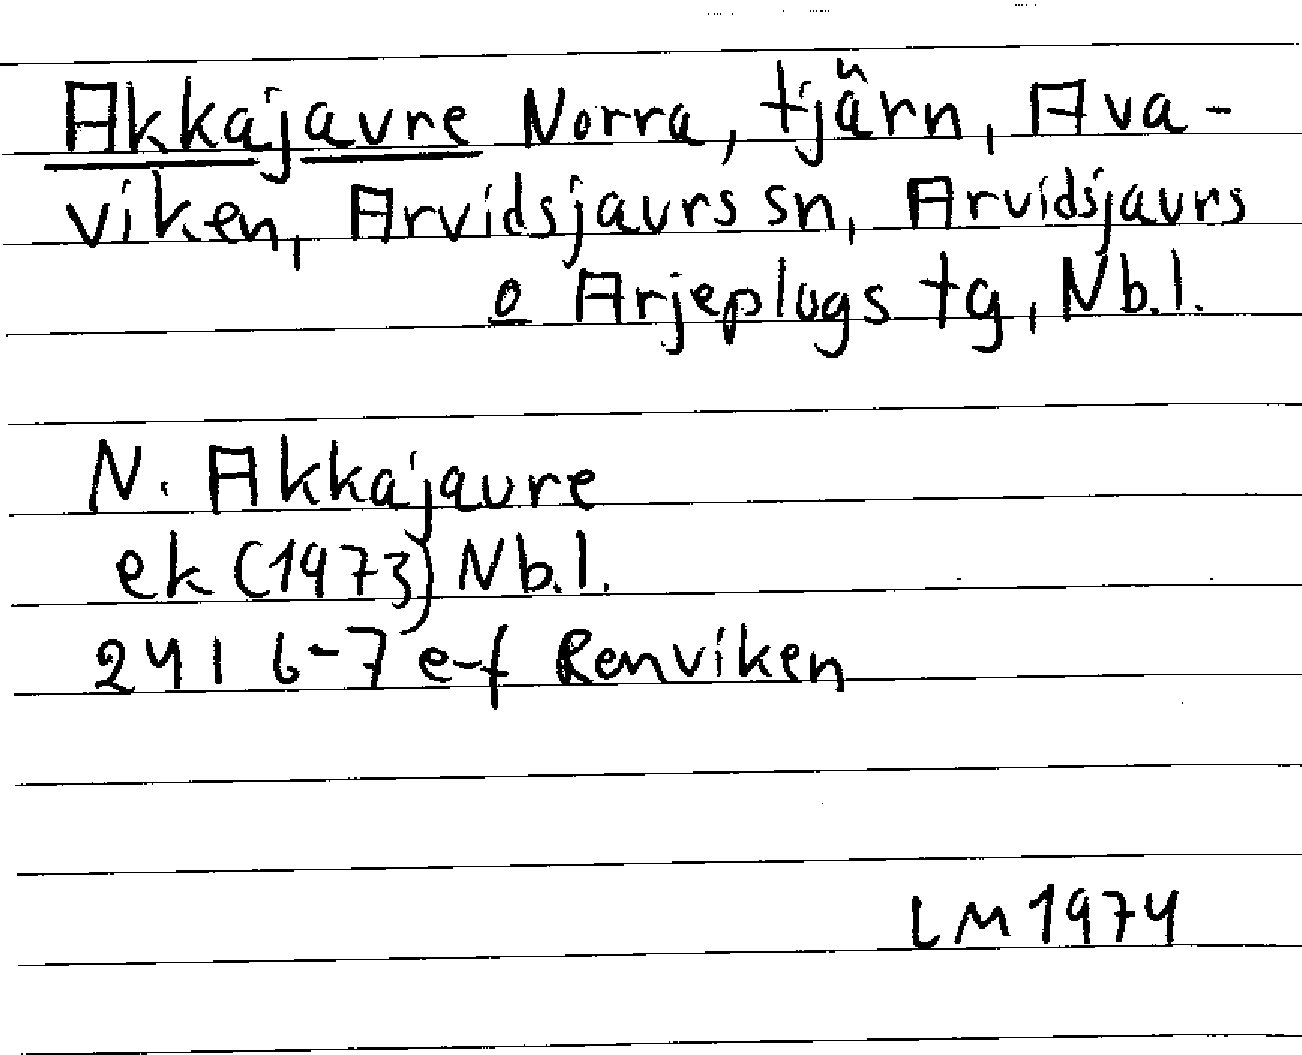 Akkajaure Norra, tjärn, Ava-
viken, Arvidsjaurs sn, Arvidsjaurs
o Arjeplogs tg, Nb.l.
N. Akkajaure
ek (1973) Nb.l.
24I 6-7 e-f Renviken
LM 1974